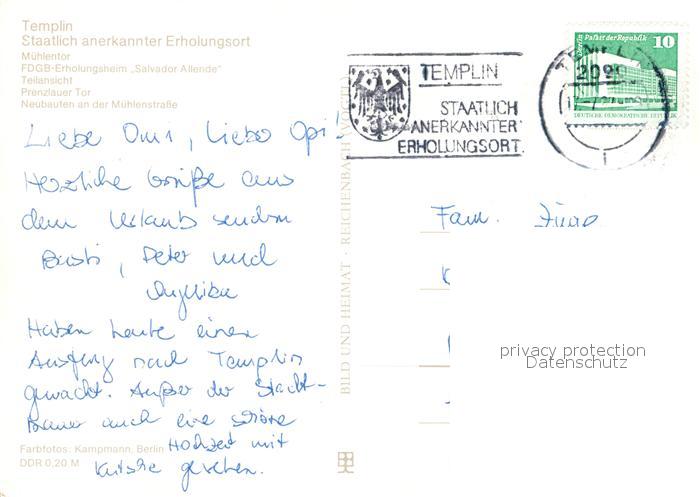 Templin
Staatlich anerkannter Erholungsort
Mühlentor
FDGB-Erholungsheim „Salvador Allende"
Teilansicht
Prenzlauer Tor
Neubauten an der Mühlenstraße
Liebe Omi, liebe Opi!
Herzliche Grüße aus
dem Urlaub senden
Peter und
Angelika
Haben heute einen
Ausflug nach Templin
gemacht. Außer der Stadt-
mauer auch eine schöne
Hochzeit mit
Kutsche gesehen.
Farbfotos: Kampmann, Berlin
DDR 0,20 M
BILD UND HEIMAT · REICHENBACH
TEMPLIN
STAATLICH
ANERKANNTER
ERHOLUNGSORT.
Berlin Palast der Republik
10
DEUTSCHE DEMOKRATISCHE REPUBLIK
Fam.
privacy protection
Datenschutz